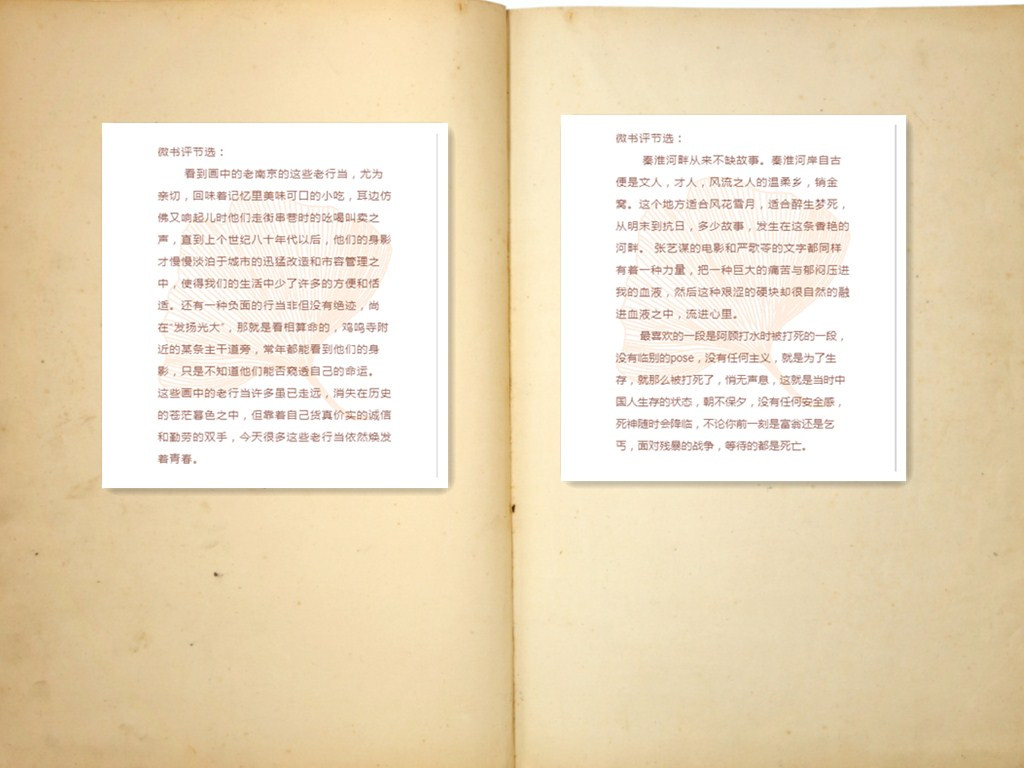 微书评节选：
看到画中的老南京的这些老行当，尤为
亲切，回味着记忆里美味可口的小吃，耳边仿
佛又响起儿时他们走街串巷时的吆喝叫卖之
声，直到上个世纪八十年代以后，他们的身影
才慢慢淡泊于城市的迅猛改造和市容管理之
中，使得我们的生活中少了许多的方便和恬
适。还有一种负面的行当非但没有绝迹，尚
在“发扬光大”，那就是看相算命的，鸡鸣寺附
近的某条主干道旁，常年都能看到他们的身
影，只是不知道他们能否窥透自己的命运。
这些画中的老行当许多虽已走远，消失在历史
的苍茫暮色之中，但靠着自己货真价实的诚信
和勤劳的双手，今天很多这些老行当依然焕发
着青春。
微书评节选：
秦淮河畔从来不缺故事。秦淮河岸自古
便是文人，才人，风流之人的温柔乡，销金
窝。这个地方适合风花雪月，适合醉生梦死，
从明末到抗日，多少故事，发生在这条香艳的
河畔。张艺谋的电影和严歌苓的文字都同样
有着一种力量，把一种巨大的痛苦与郁闷压进
我的血液，然后这种艰涩的硬块却很自然的融
进血液之中，流进心里。
最喜欢的一段是阿顾打水时被打死的一段，
没有临别的pose，没有任何主义，就是为了生
存，就那么被打死了，悄无声息，这就是当时中
国人生存的状态，朝不保夕，没有任何安全感，
死神随时会降临，不论你前一刻是富翁还是乞
丐，面对残暴的战争，等待的都是死亡。